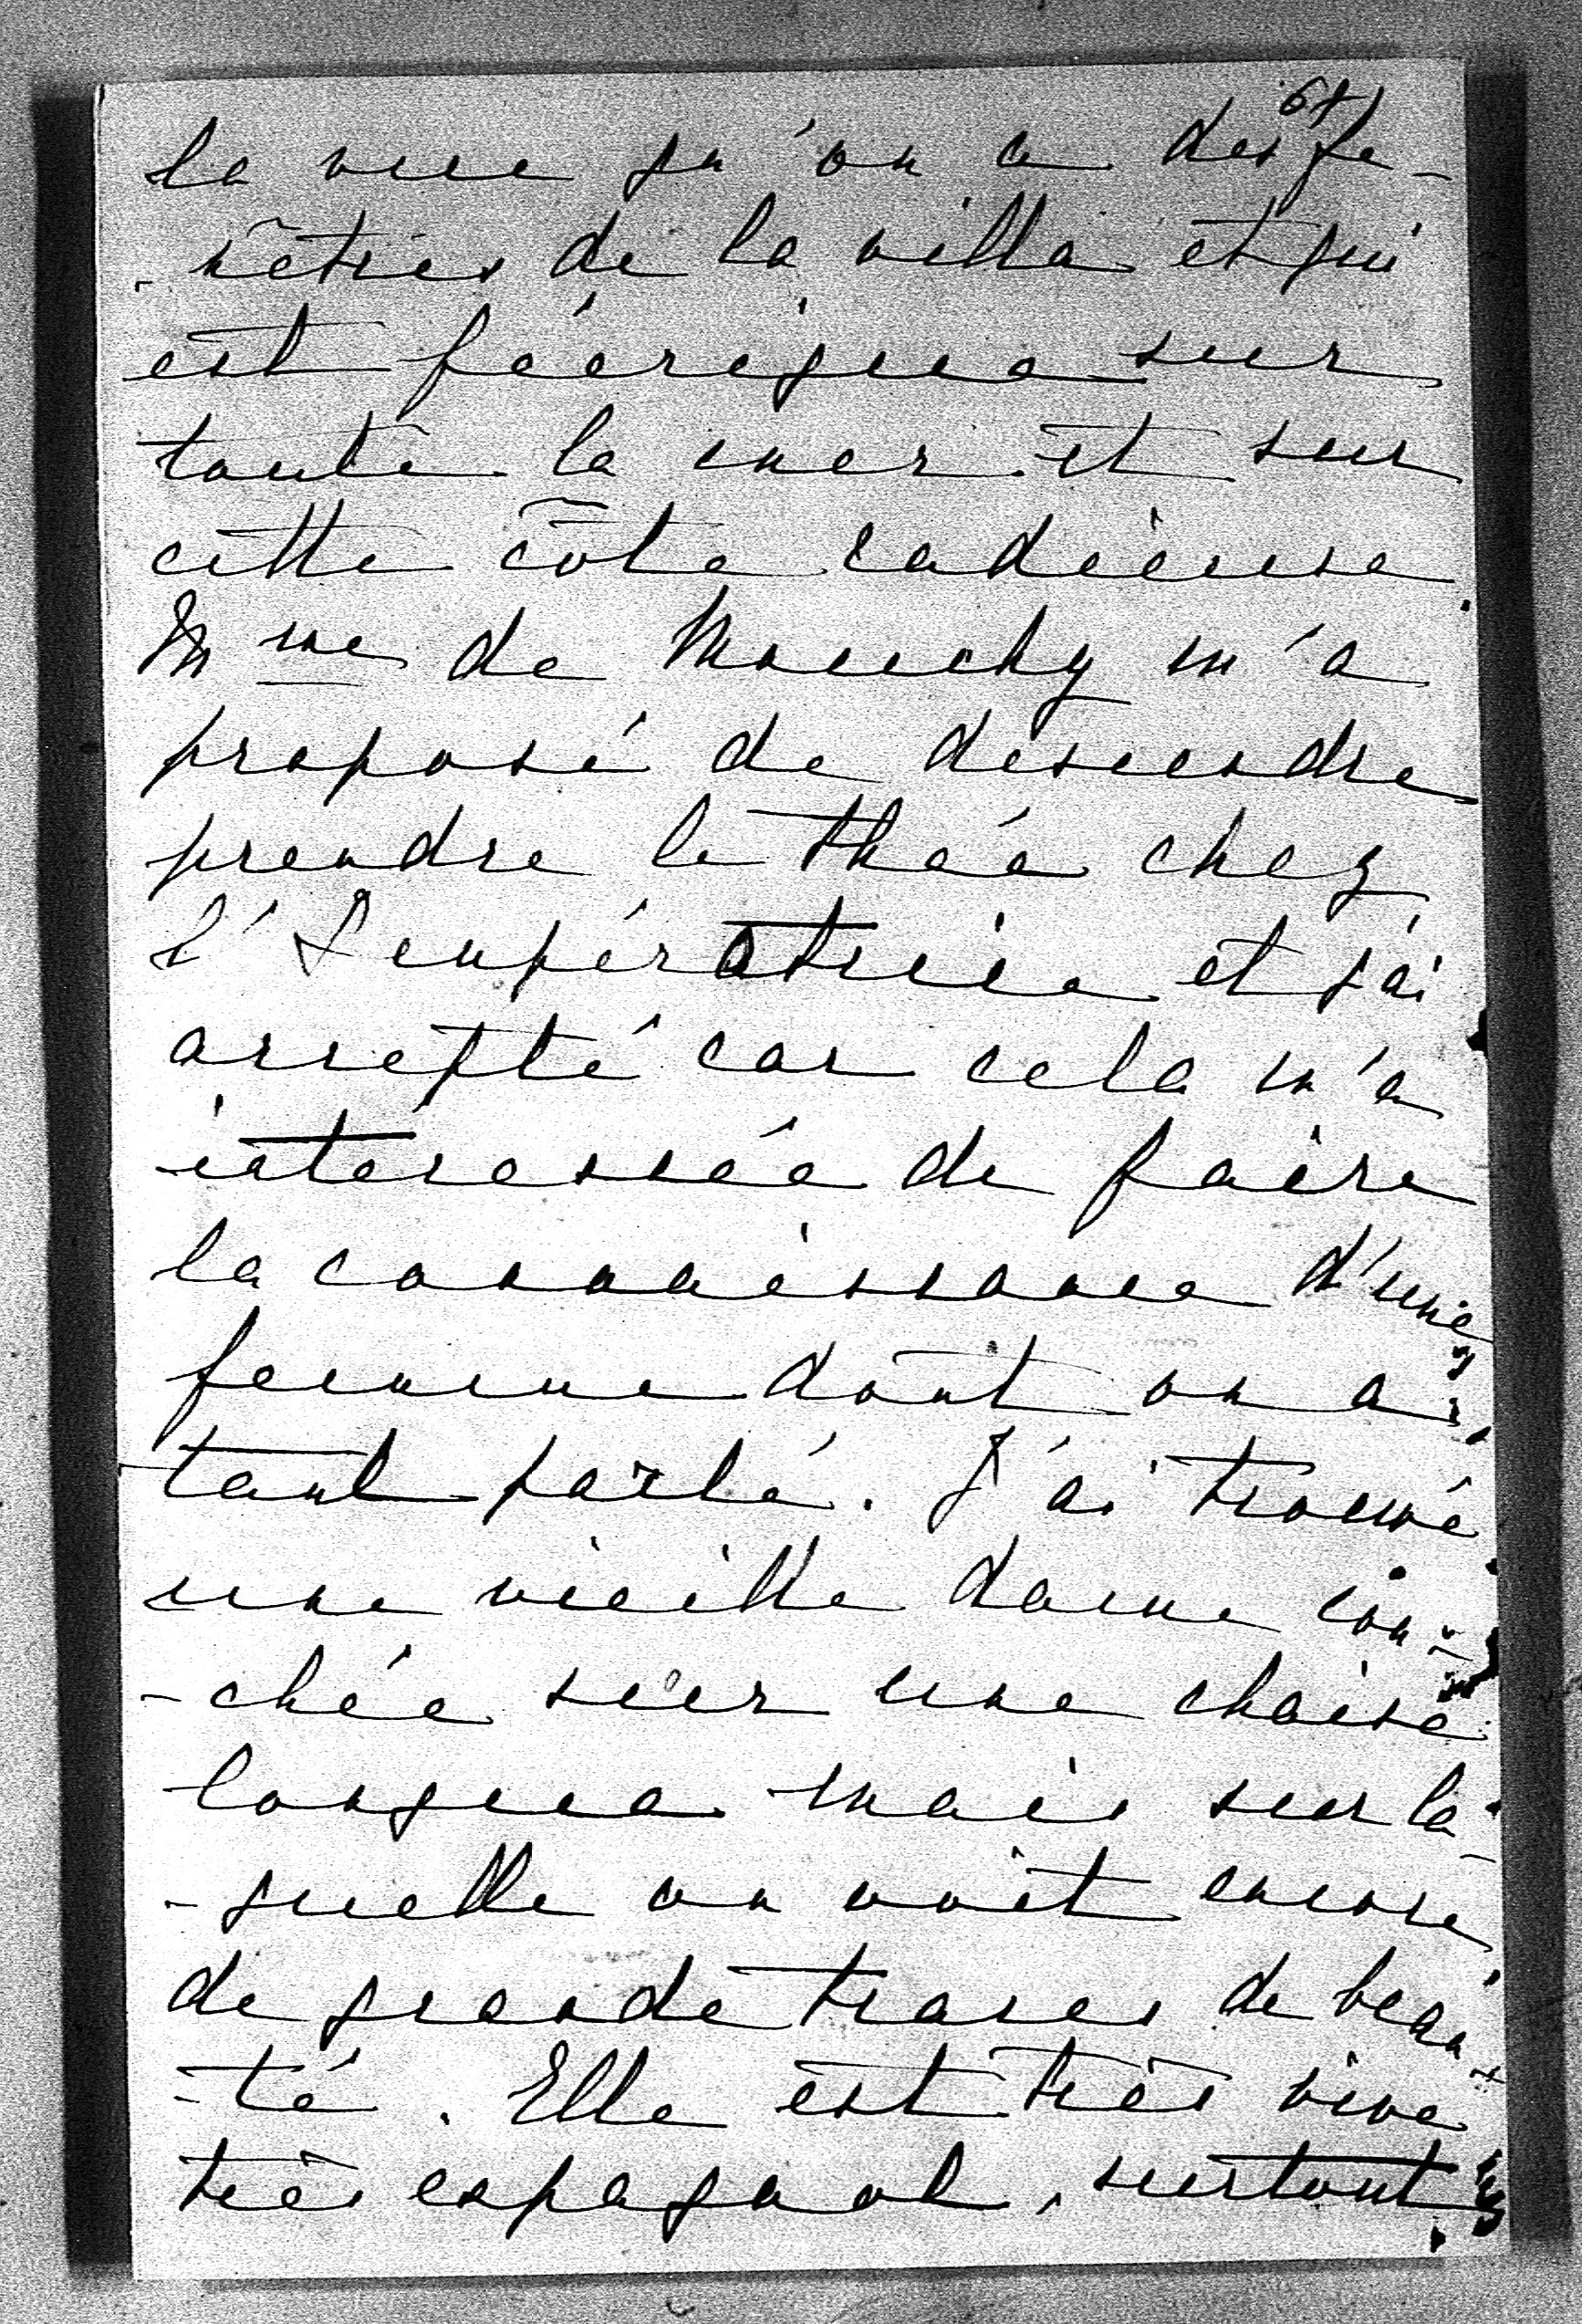 67
la vue qu'on a des fe-
-nêtres de la villa et qui
est féerique sur
toute la mer et sur
cette côte radieuse.
Mme de Mouchy m'a
proposé de descendre
prendre le thée chez
l'Impératrice et j'ai
accepté car cela m'a
intéressée de faire
la connaissance d'une
femme dont on a
tant parlé. J'ai trouvé
une vieille dame cou-
-chée sur une chaise
longue mais sur la-
-quelle on voit encore
de grande traces de beau-
-té. Elle est très vive
très espagnol, surtout